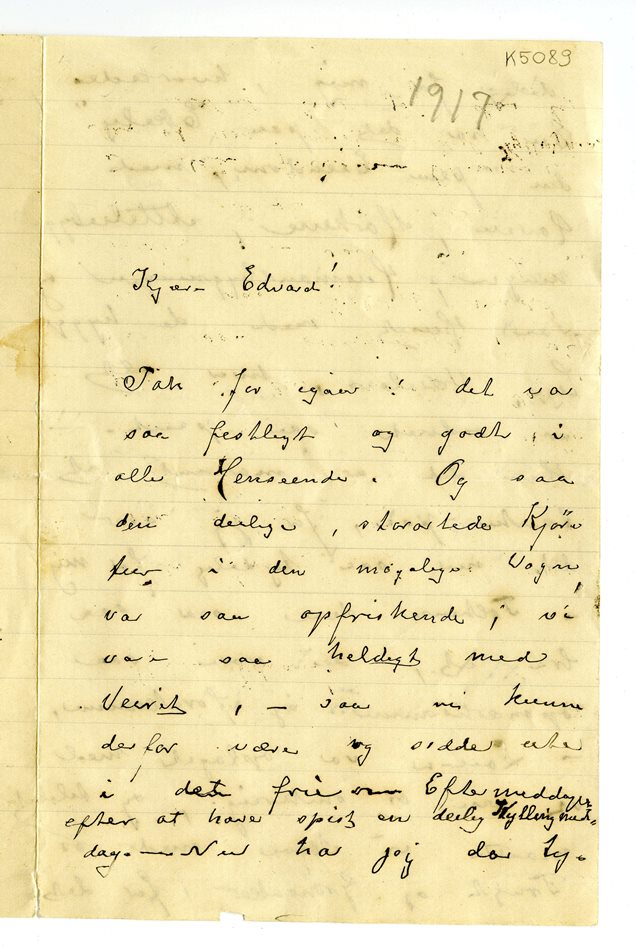 K5089
1917
Kjære Edvard!
Tak for igaar! det var
saa festligt og godt, i
alle Henseende. Og saa
den deilige, storartede Kjøre
tur i den magelige Vogn,
var saa opfriskende; vi
var saa heldigt med
Veiret, – saa vi kunne
derfor være og sidde ute
i det frie om Eftermeddagen
efter at have spist en deilig Kyllingmid-
dag. – Nu har jeg da ty-